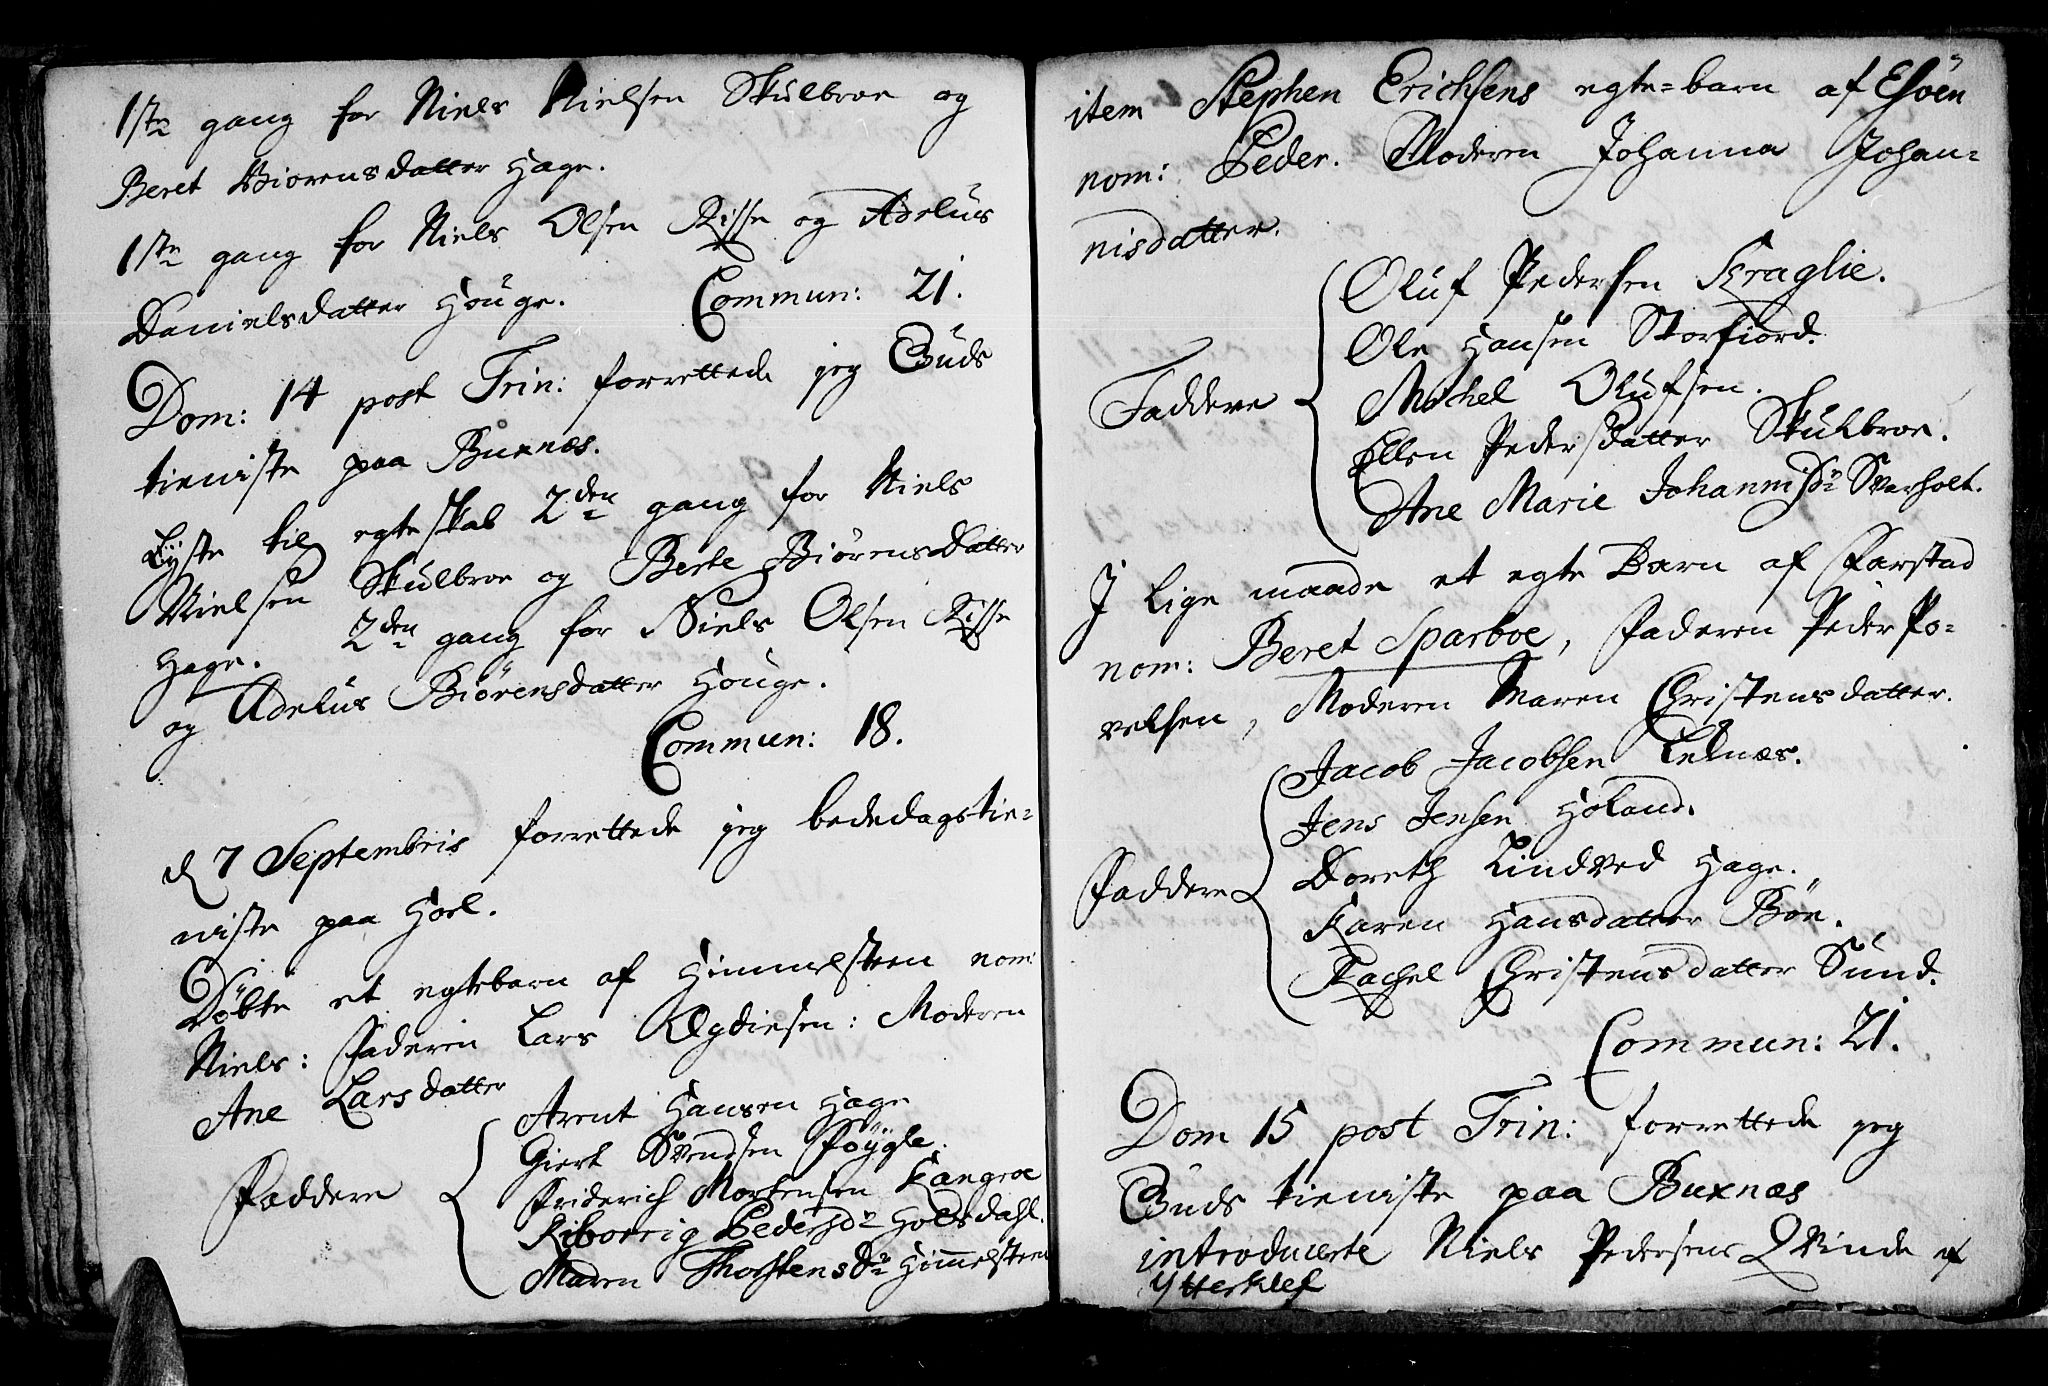 1ste gang for Niels Nielsen Skulbroe og
Beret Biorensdatter Hage.
1ste gang for Niels Olsen Risse og Adelus
Danielsdatter Houge. Commun: 21.
Dom: 14 post Trin: forrettede jeg Guds
tieniste paa Buxnæs.
Lyste til egteskab 2den gang for Niels
Nielsen Skulbroe og Berte Biörensdatter
Hage. 2den gang for Niels Olsen Risse
og Adelus Biörensdatter Houge.
Commun: 18.
d 7 Septembris forrettede jeg bededagstie=
niste paa Hoel.
Döbte et egtebarn af Himmelsteen nom:
Niels: Faderen Lars Ægdiesen: Moderen
Ane Larsdatter
Faddere
Arent Hansen Hage
Giert Svendsen Föygle.
Friderich Mortensen Kangeroe
Pedersdr Holdsdahl.
Maren Thorstensdr Himelsteen
item Stephen Erichsens egte=barn af Esöen
nom: Peder. Moderen Johanna Johan=
nisdatter.
Faddere
Oluf Pedersen Kraglie.
Ole Hansen Storfiord.
Michel Olufsen.
Ellen Pedersdatter Skulbroe.
Ane Marie Johannisdr Sværholt.
J lige maade et egte Barn af Farstad
nom: Beret Sparboe, Faderen Peder Po=
velsen, Moderen Maren Christensdatter.
Faddere
Jacob Jacobsen Leknæs.
Jens Jensen Holand.
Doreth Lindved Hage.
Karen Hansdatter Böe.
Rachel Christensdatter Sund.
Commun: 21.
Dom 15 post Trin: forrettede jeg
Guds tieniste paa Buxnæs
introducerte Niels Pedersens Qvinde af
Ytterklef